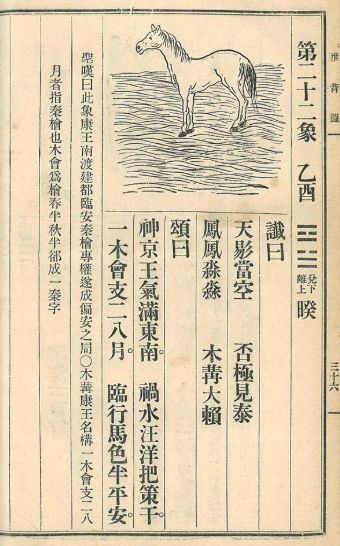 推背圖
三十六
第二十二象 乙酉 ䷥ 兌下離上 睽
讖曰
天影當空 否極見泰
鳳鳳淼淼 木冓大賴
頌曰
神京王氣滿東南。 禍水汪洋把策干。
一木會支二八月。 臨行馬色半平安。
聖嘆曰此象康王南渡建都臨安秦檜專權遂成偏安之局○木冓康王名構一木會支二八
月者指秦檜也木會爲檜春半秋半卻成一秦字